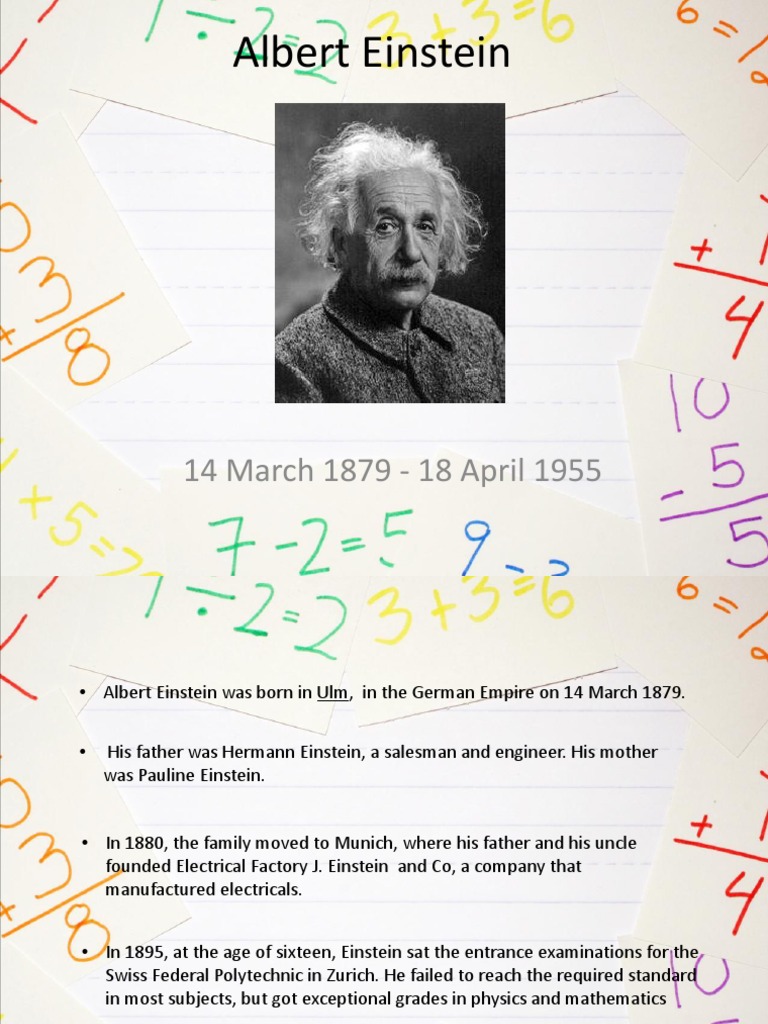 1 ÷ 2 = 2 3 + 3 = 6
6 =
Albert Einstein
3
8
+
4
10
- 5
5
14 March 1879 - 18 April 1955
+ 5 =
7 - 2 = 5 9 -
1 ÷ 2 = 2 3 + 3 = 6
6 =
• Albert Einstein was born in Ulm, in the German Empire on 14 March 1879.
• His father was Hermann Einstein, a salesman and engineer. His mother
was Pauline Einstein.
3
8
+
4
• In 1880, the family moved to Munich, where his father and his uncle
founded Electrical Factory J. Einstein and Co, a company that
manufactured electricals.
• In 1895, at the age of sixteen, Einstein sat the entrance examinations for the
Swiss Federal Polytechnic in Zurich. He failed to reach the required standard
in most subjects, but got exceptional grades in physics and mathematics
10